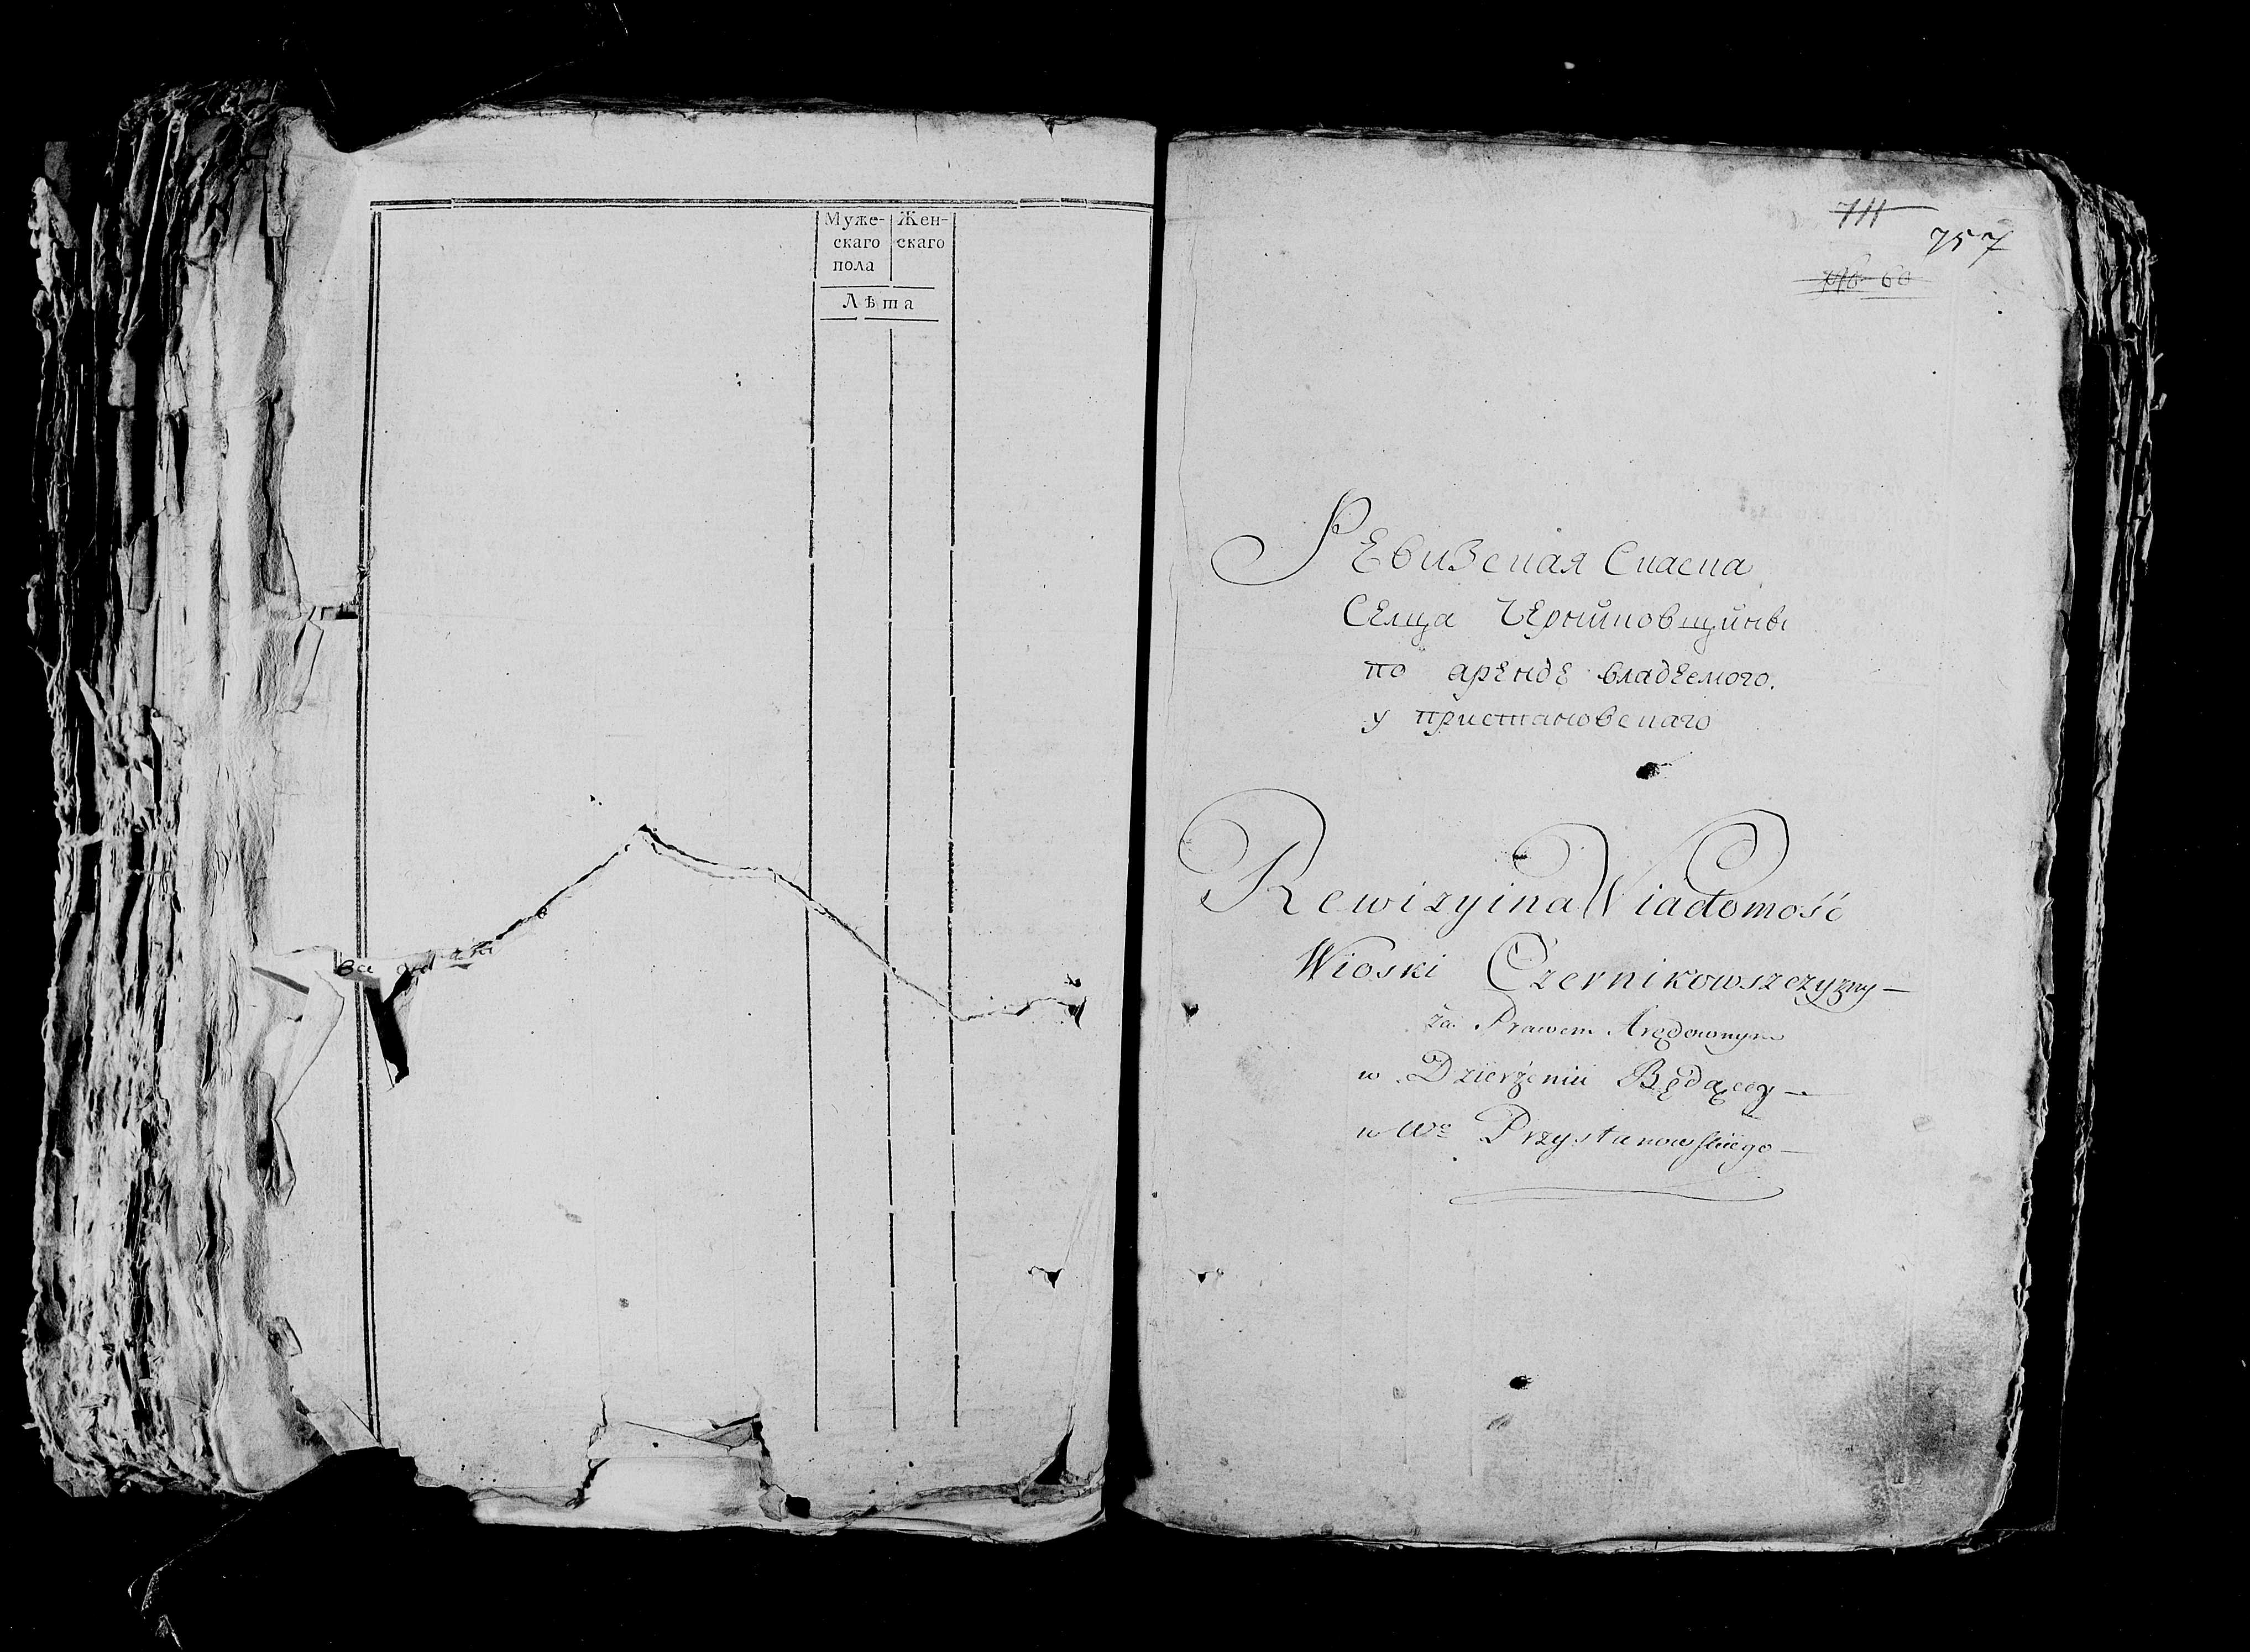 Муже- Жен-
скаго скаго
пола
Лѣта
711
757
60
Ревизская Сказка
Селца Черниковщины
по аренде владеемого.
у пристановскаго
Rewizyina Wiadomość
Wioski Czernikowszczyzny —
za Prawem Arędownym
w Dzierżeniu Będącey —
u Wo Przystanowskiego —